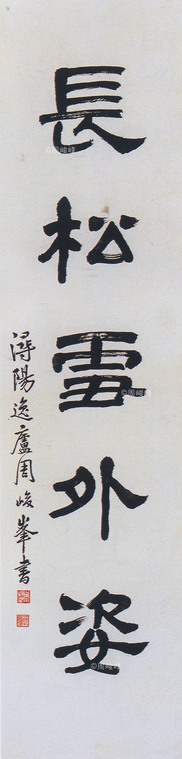 長松雪外姿
潯陽逸廬周峻峯書